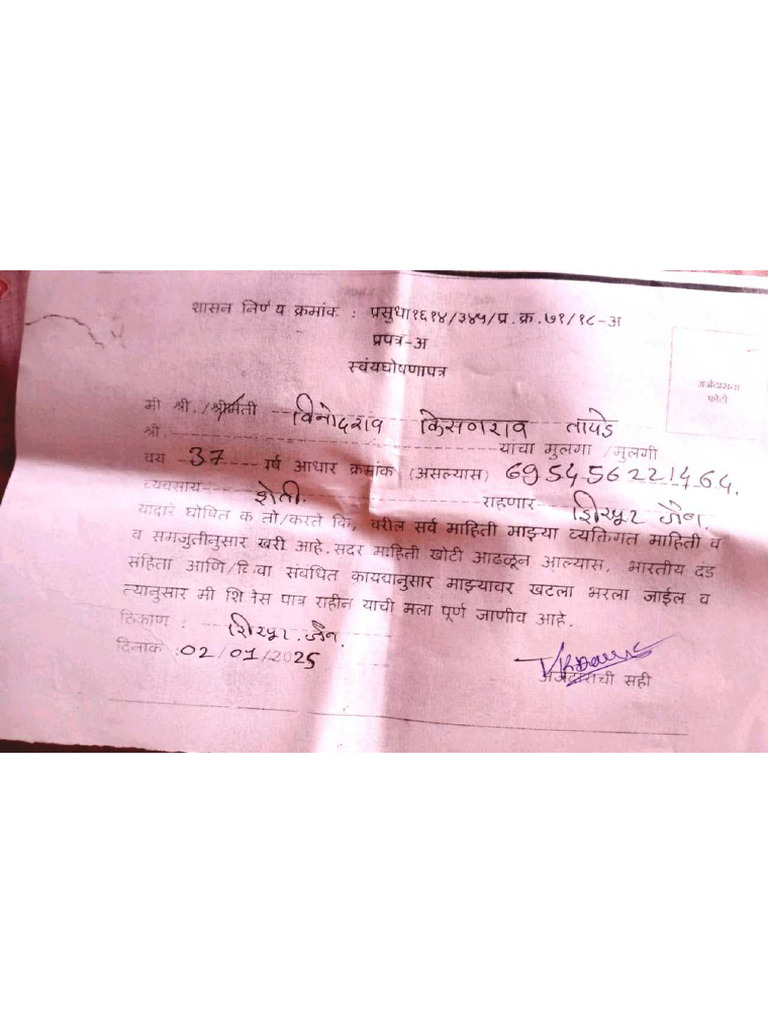 शासन निर्णय क्रमांक : प्रसुधा१६१४/३४५/प्र.क्र.७१/१८-अ
प्रपत्र-अ
स्वंयघोषणापत्र
अर्जदाराचा
फोटो
मी श्री./श्रीमती विनोदराव किसनराव तायडे
श्री. याचा मुलगा /मुलगी
वय 37 वर्ष आधार क्रमांक (असल्यास) 695456221464.
व्यवसाय शेती. राहणार शिरपूर जैन.
याद्वारे घोषित क तो/करते कि, वरील सर्व माहिती माझ्या व्यक्तिगत माहिती व
व समजुतीनुसार खरी आहे. सदर माहिती खोटी आढळून आल्यास, भारतीय दंड
संहिता आणि/किंवा संबंधित कायद्यानुसार माझ्यावर खटला भरला जाईल व
त्यानुसार मी शिक्षेस पात्र राहीन याची मला पूर्ण जाणीव आहे.
ठिकाण : शिरपूर जैन.
दिनांक :02/01/2025
अर्जदाराची सही